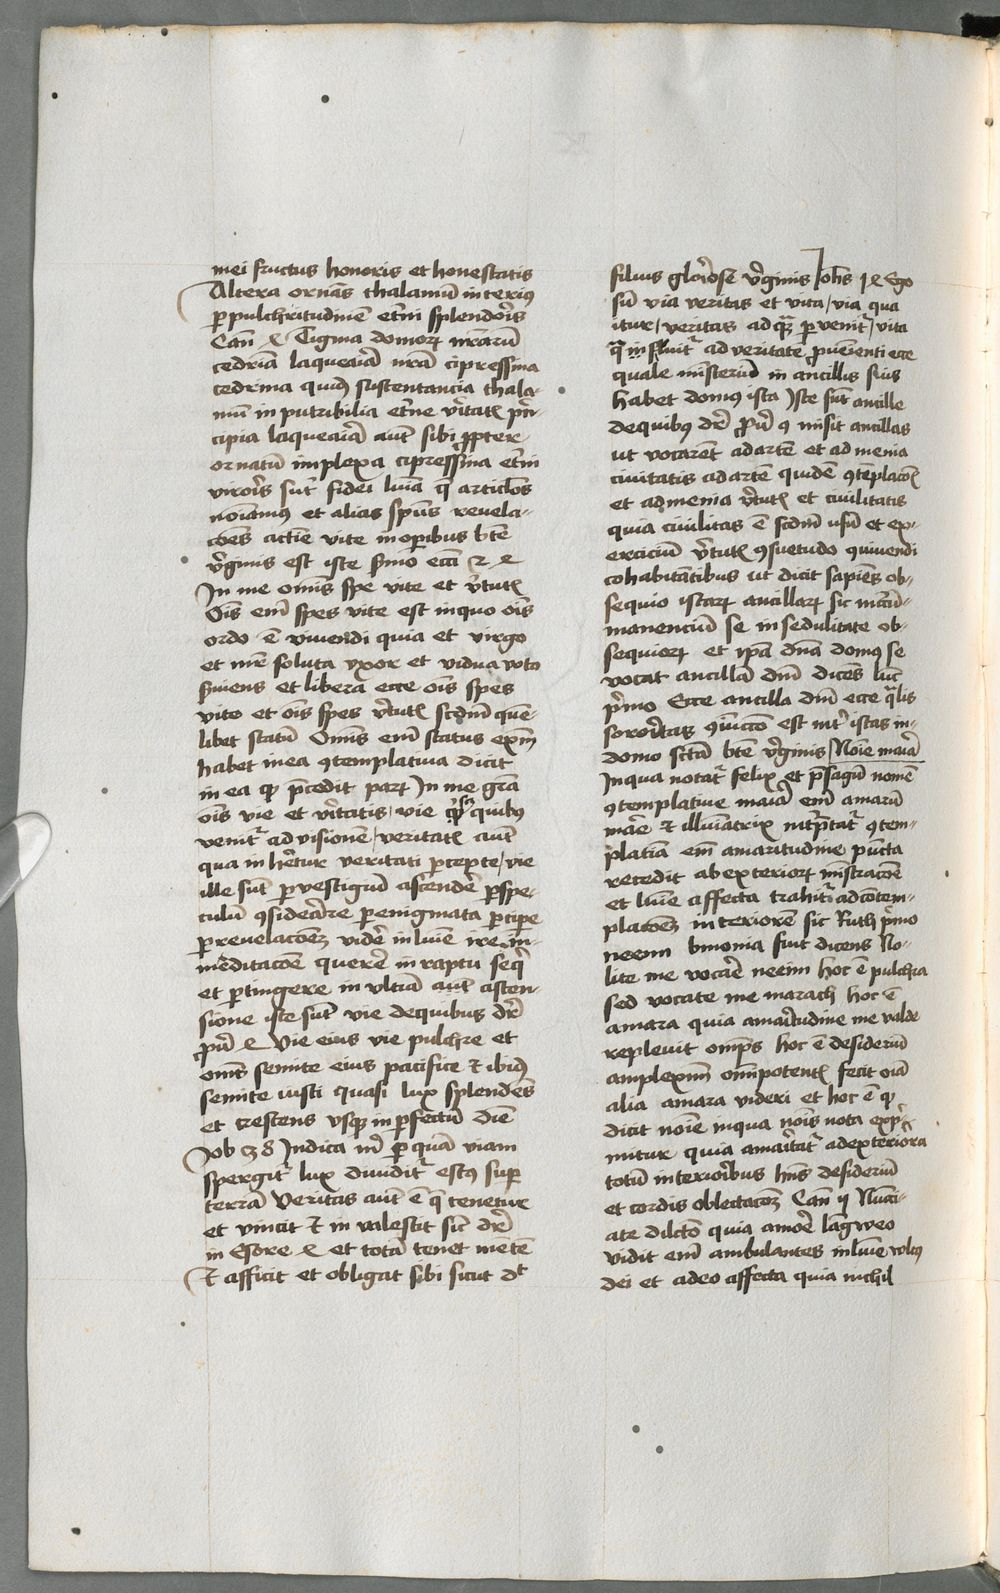 mei fructus honoris et honestatis
Altera ornās thalamū interiꝰ
ꝑ pulchritudinē et̄ni splendoris
Can̄ Tigna domoꝝ nr̄arū
cedrīa laqueaīa nr̄a cipressina
cedrina quidē sustentancia thala-
mū inputribilia et̄ne v̓itatis p̓n-
cipia laqueaīa aūt sibi ꝓpter
ornatū implexa cipressina et̄ni
viroris sūt fidei lūīa q̄ articl̓os
noīamus et alias sp̄us reuela-
cōes actīe vite in oꝑibus bt̄e
v̓ginis est iste sermo ecc̄i
In me omīs spes vite et v̓tutis
Oīs em̄ spes vite est inquo oīs
ordo ē viuendi quia et virgo
et mr̄ soluta vxor et vidua voto
s̓uiens et libera ecce oīs spes
vite et oīs spes v̓tutis scd̄m quē-
libet statū Omīs em̄ status
habet in ea ꝯtemplatiua dicit
in ea qͥ p̄cedit part̓ In me gr̄a
oīs vie et v̓itatis vie quibꝰ
venit̓ ad visionē veritatis aūt
qua inh̓etur veritati ꝑcepte vie
ille sūt ꝑ vestigiū ascendere ꝑ spe-
culū ꝯsiderare ꝑ enigmata ꝑcipe
ꝑ reuelacōem videre in lūīe ire in
meditacōe querere in raptu seqͥ
et ꝑtingere in vltīa aūt ascen-
sione iste sūt vie de quibus dr̄
ꝓū Vie eius vie pulchre et
oms̄ semite eius pacifice et ibidē
semite iusti quasi lux splendens
et crescens vsqꝫ in ꝑfectū diē
Job 38 Indica m̓ ꝑ quā viam
spergit̓ lux diuidit̓ estꝰ sup̄
terrā Veritas aūt ē q̄ tenetur
et vincit et inualescit sic̄ dr̄
in Esdre et totā tenet mentē
et afficit et obligat sibi sicut dt̄
filius glōiose v̓ginis Joh̄s Ego
sū via veritas et vita via qua
itur veritas ad quā ꝑvenit̓ vita
q̄ influit̓ ad veritatē ꝑuenienti ecce
quale mīsteriū in ancillis suis
habet domus ista Iste sūt ancille
de quibus dr̄ ꝓū ꝙ misit ancillas
ut vocarēt ad artē et ad menia
ciuitatis ad artē quidē ꝯtēplacōis
et ad menia v̓tutis et ciuilitatis
quia ciuilitas ē scd̄m usū et ex-
erciciū v̓tutis ꝯsuetudo ꝯuiuendi
cohabitātibus ut dicit sapiēs ob-
sequio istarꝝ ancillarꝝ sic
manenciū se in sedulitate ob-
sequiorꝝ et ip̄a dn̄a domus se
vocat ancillā dn̄i dicēs luc̄
p̓mo Ecce ancilla dn̄i ecce q̄lis
sororitas ꝯiūccō est int̓ istas in-
domo sc̄tā bt̄e v̓ginis Noīe maīa
Inqua notat̓ felix et p̄sagū nomē
ꝯtemplatiue maīa em̄ amarū
mare et illūīatrix int̓p̄tat̓ ꝯtem-
platīa em̄ amaritudine pūcta
recedit ab exteriorꝝ mīstracōe
et lūīe affecta trahit̓ ad ꝯtem-
placōem interiorē sic Ruth p̓mo
neemi bīnomia fuit dicens No-
lite me vocare neemi hoc ē pulchra
sed vocate me marach hoc ē
amara quia amaritudine me valde
repleuit omp̄s hoc ē desideriū
amplexum omīpotentis fecit oīa
alia amara videri et hoc ē qͥ
dicit noīe inqua noīs nota exp̓-
mitur quia amaricat̓ ad exteriora
totū interioribus hn̄s desideriū
et cordis oblectacōem Can̄ ij Nūci-
ate dilc̄o quia amore langweo
vidit em̄ ambulantes in lūīe vultꝰ
dei et adeo affecta quia nichil